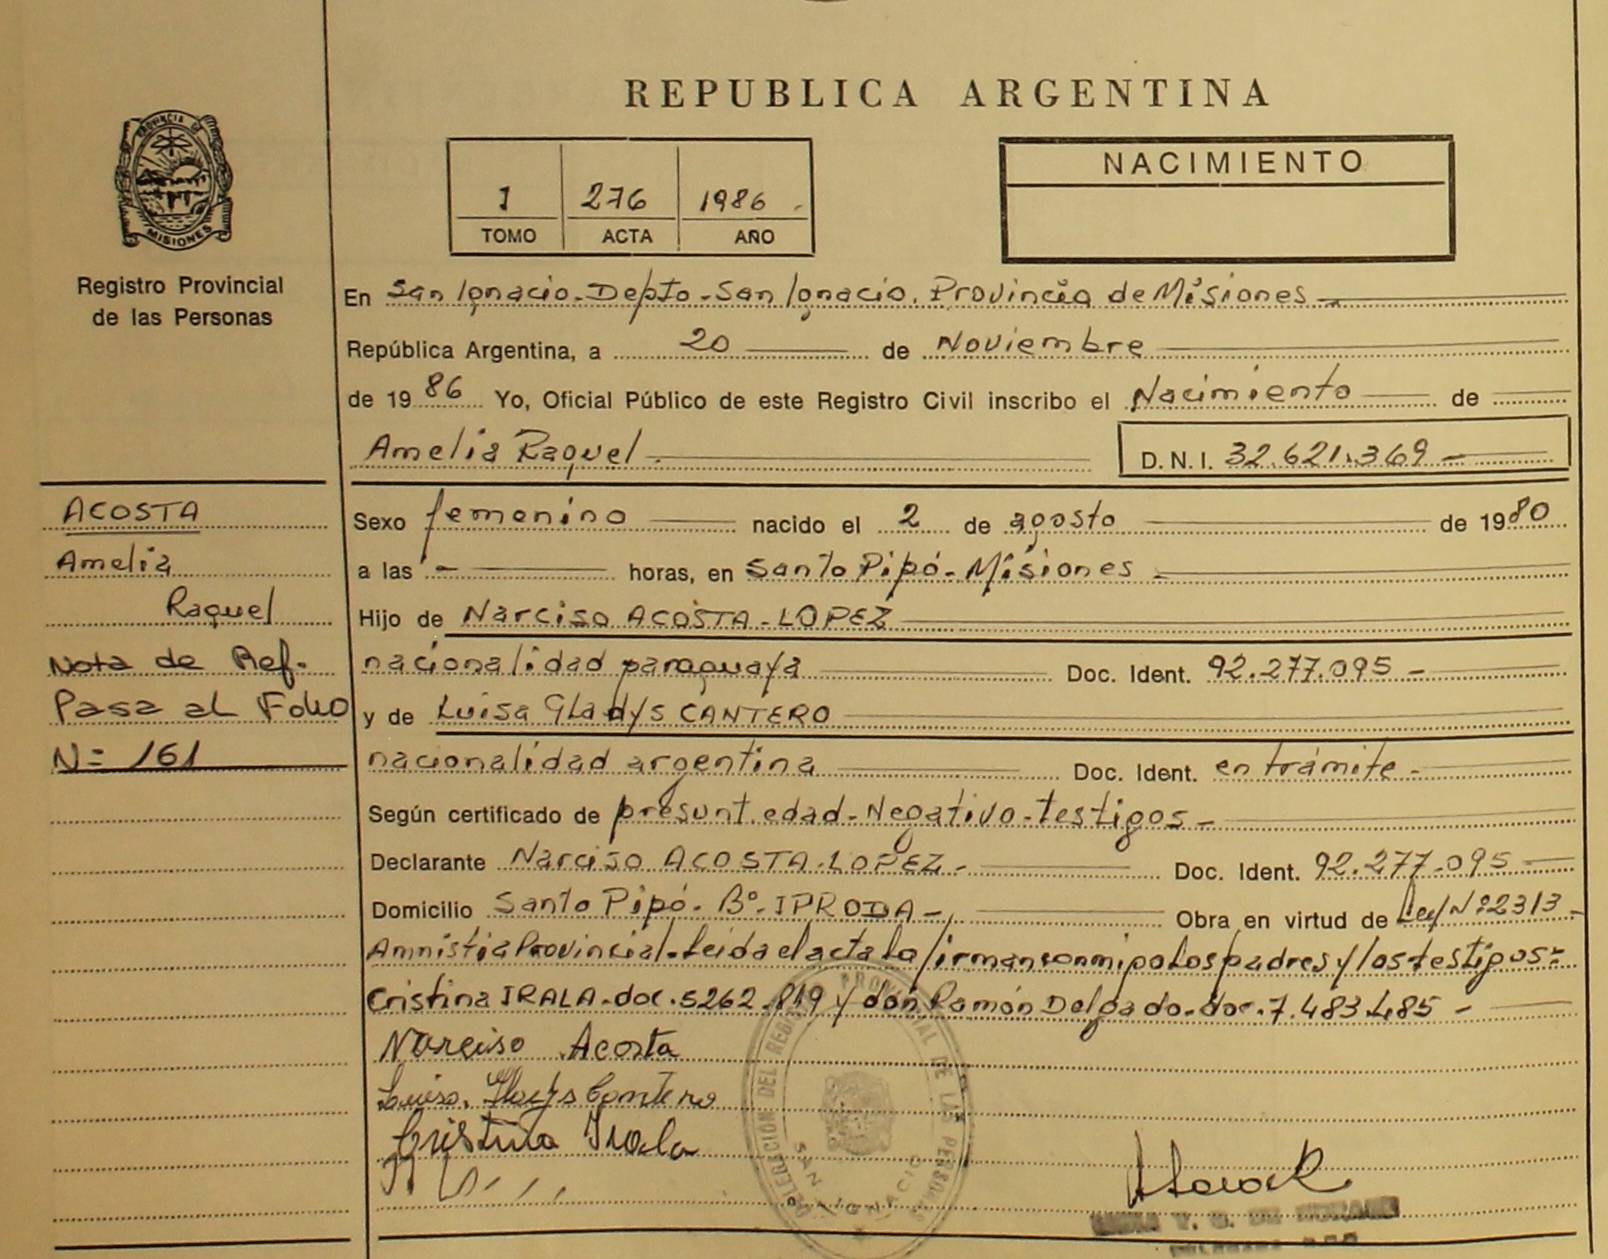 REPUBLICA ARGENTINA
PROVINCIA DE
MISIONES
Registro Provincial
de las Personas
1 276 1986
TOMO ACTA AÑO
NACIMIENTO
En San Ignacio - Depto - San Ignacio. Provincia de Misiones
República Argentina, a 20 de Noviembre
de 1986 Yo, Oficial Público de este Registro Civil inscribo el Nacimiento de
Amelia Raquel D.N.I. 32.621.369
ACOSTA
Amelia
Raquel
Nota de Ref.
Pasa al Folio
Nº 161
Sexo femenino nacido el 2 de agosto de 1980
a las - horas, en Santo Pipó - Misiones
Hijo de Narciso ACOSTA - LOPEZ
nacionalidad paraguaya Doc. Ident. 92.277.095
y de Luisa Gladys CANTERO
nacionalidad argentina Doc. Ident. en trámite
Según certificado de presunt. edad - Negativo - testigos
Declarante Narciso ACOSTA - LOPEZ Doc. Ident. 92.277.095
Domicilio Santo Pipó - Bº - IPRODA Obra en virtud de Ley Nº 2313
Amnistia Provincial - Leida el acta la firman conmigo los padres y los testigos:
Cristina IRALA - doc. 5262.819 y don Ramón Delgado - doc. 7.483.485
Narciso Acosta
Luisa Gladys Cantero
Cristina Irala
DELEGACION DEL REGISTRO PROVINCIAL DE LAS PERSONAS
SAN IGNACIO